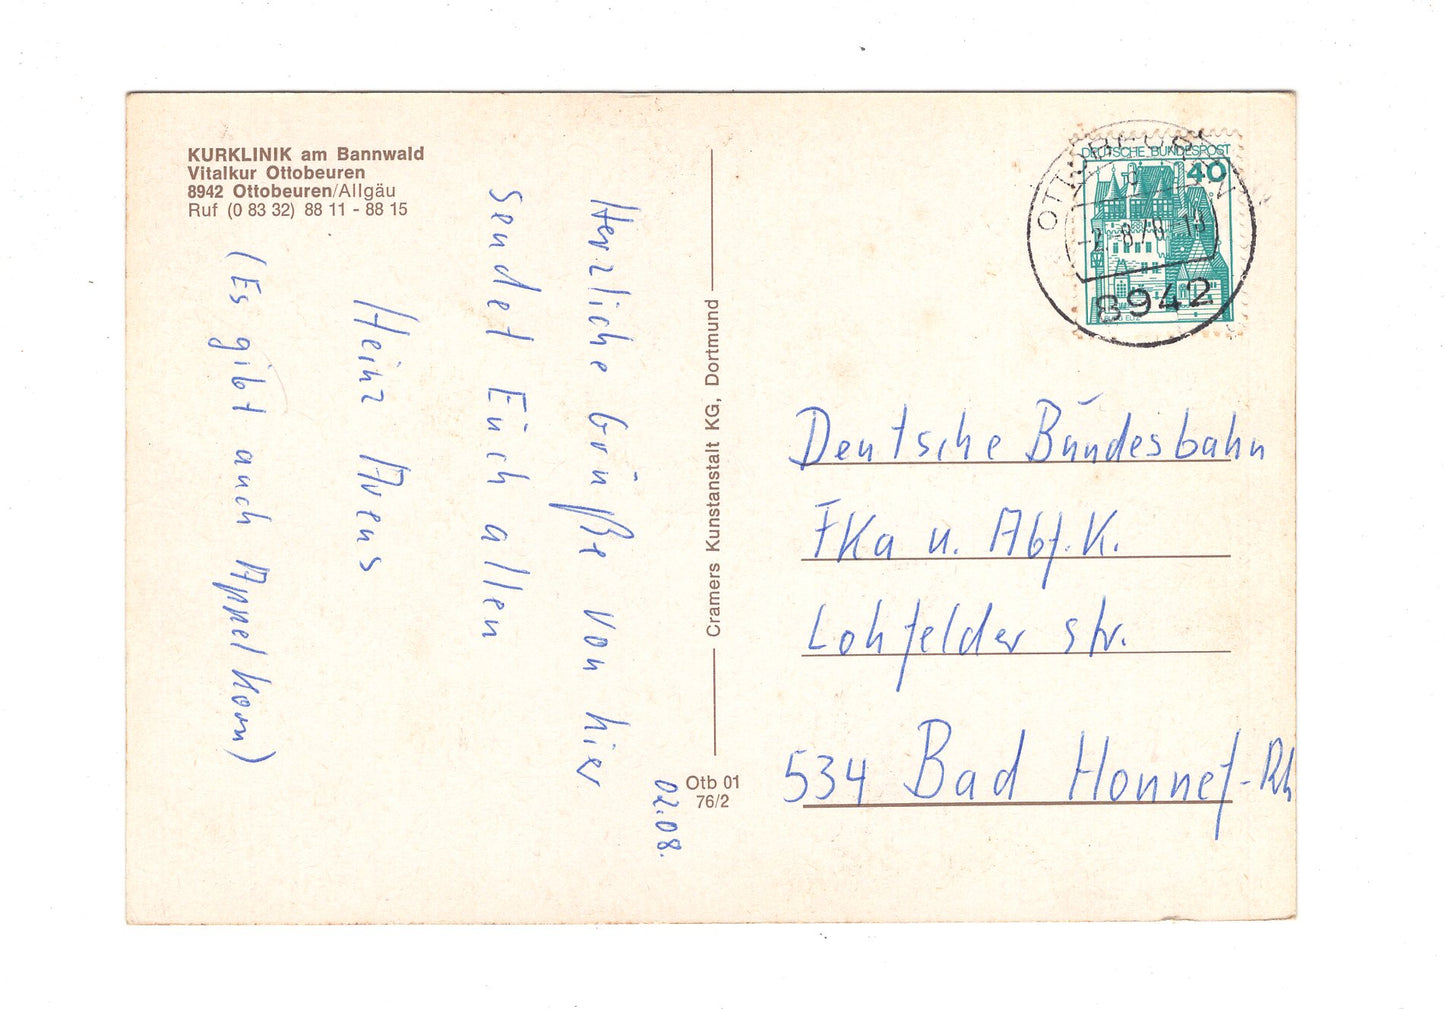 KURKLINIK am Bannwald
Vitalkur Ottobeuren
8942 Ottobeuren/Allgäu
Ruf (0 83 32) 88 11 - 88 15
02.08.
Herzliche Grüße von hier
sendet Euch allen
Heinz Avens
(Es gibt auch Appelkorn)
Cramers Kunstanstalt KG, Dortmund
Otb 01
76/2
DEUTSCHE BUNDESPOST
40
BURG ELTZ
OTTOBEUREN
8942
Deutsche Bundesbahn
FKa u. Abf. K.
Lohfelder Str.
534 Bad Honnef-Rh